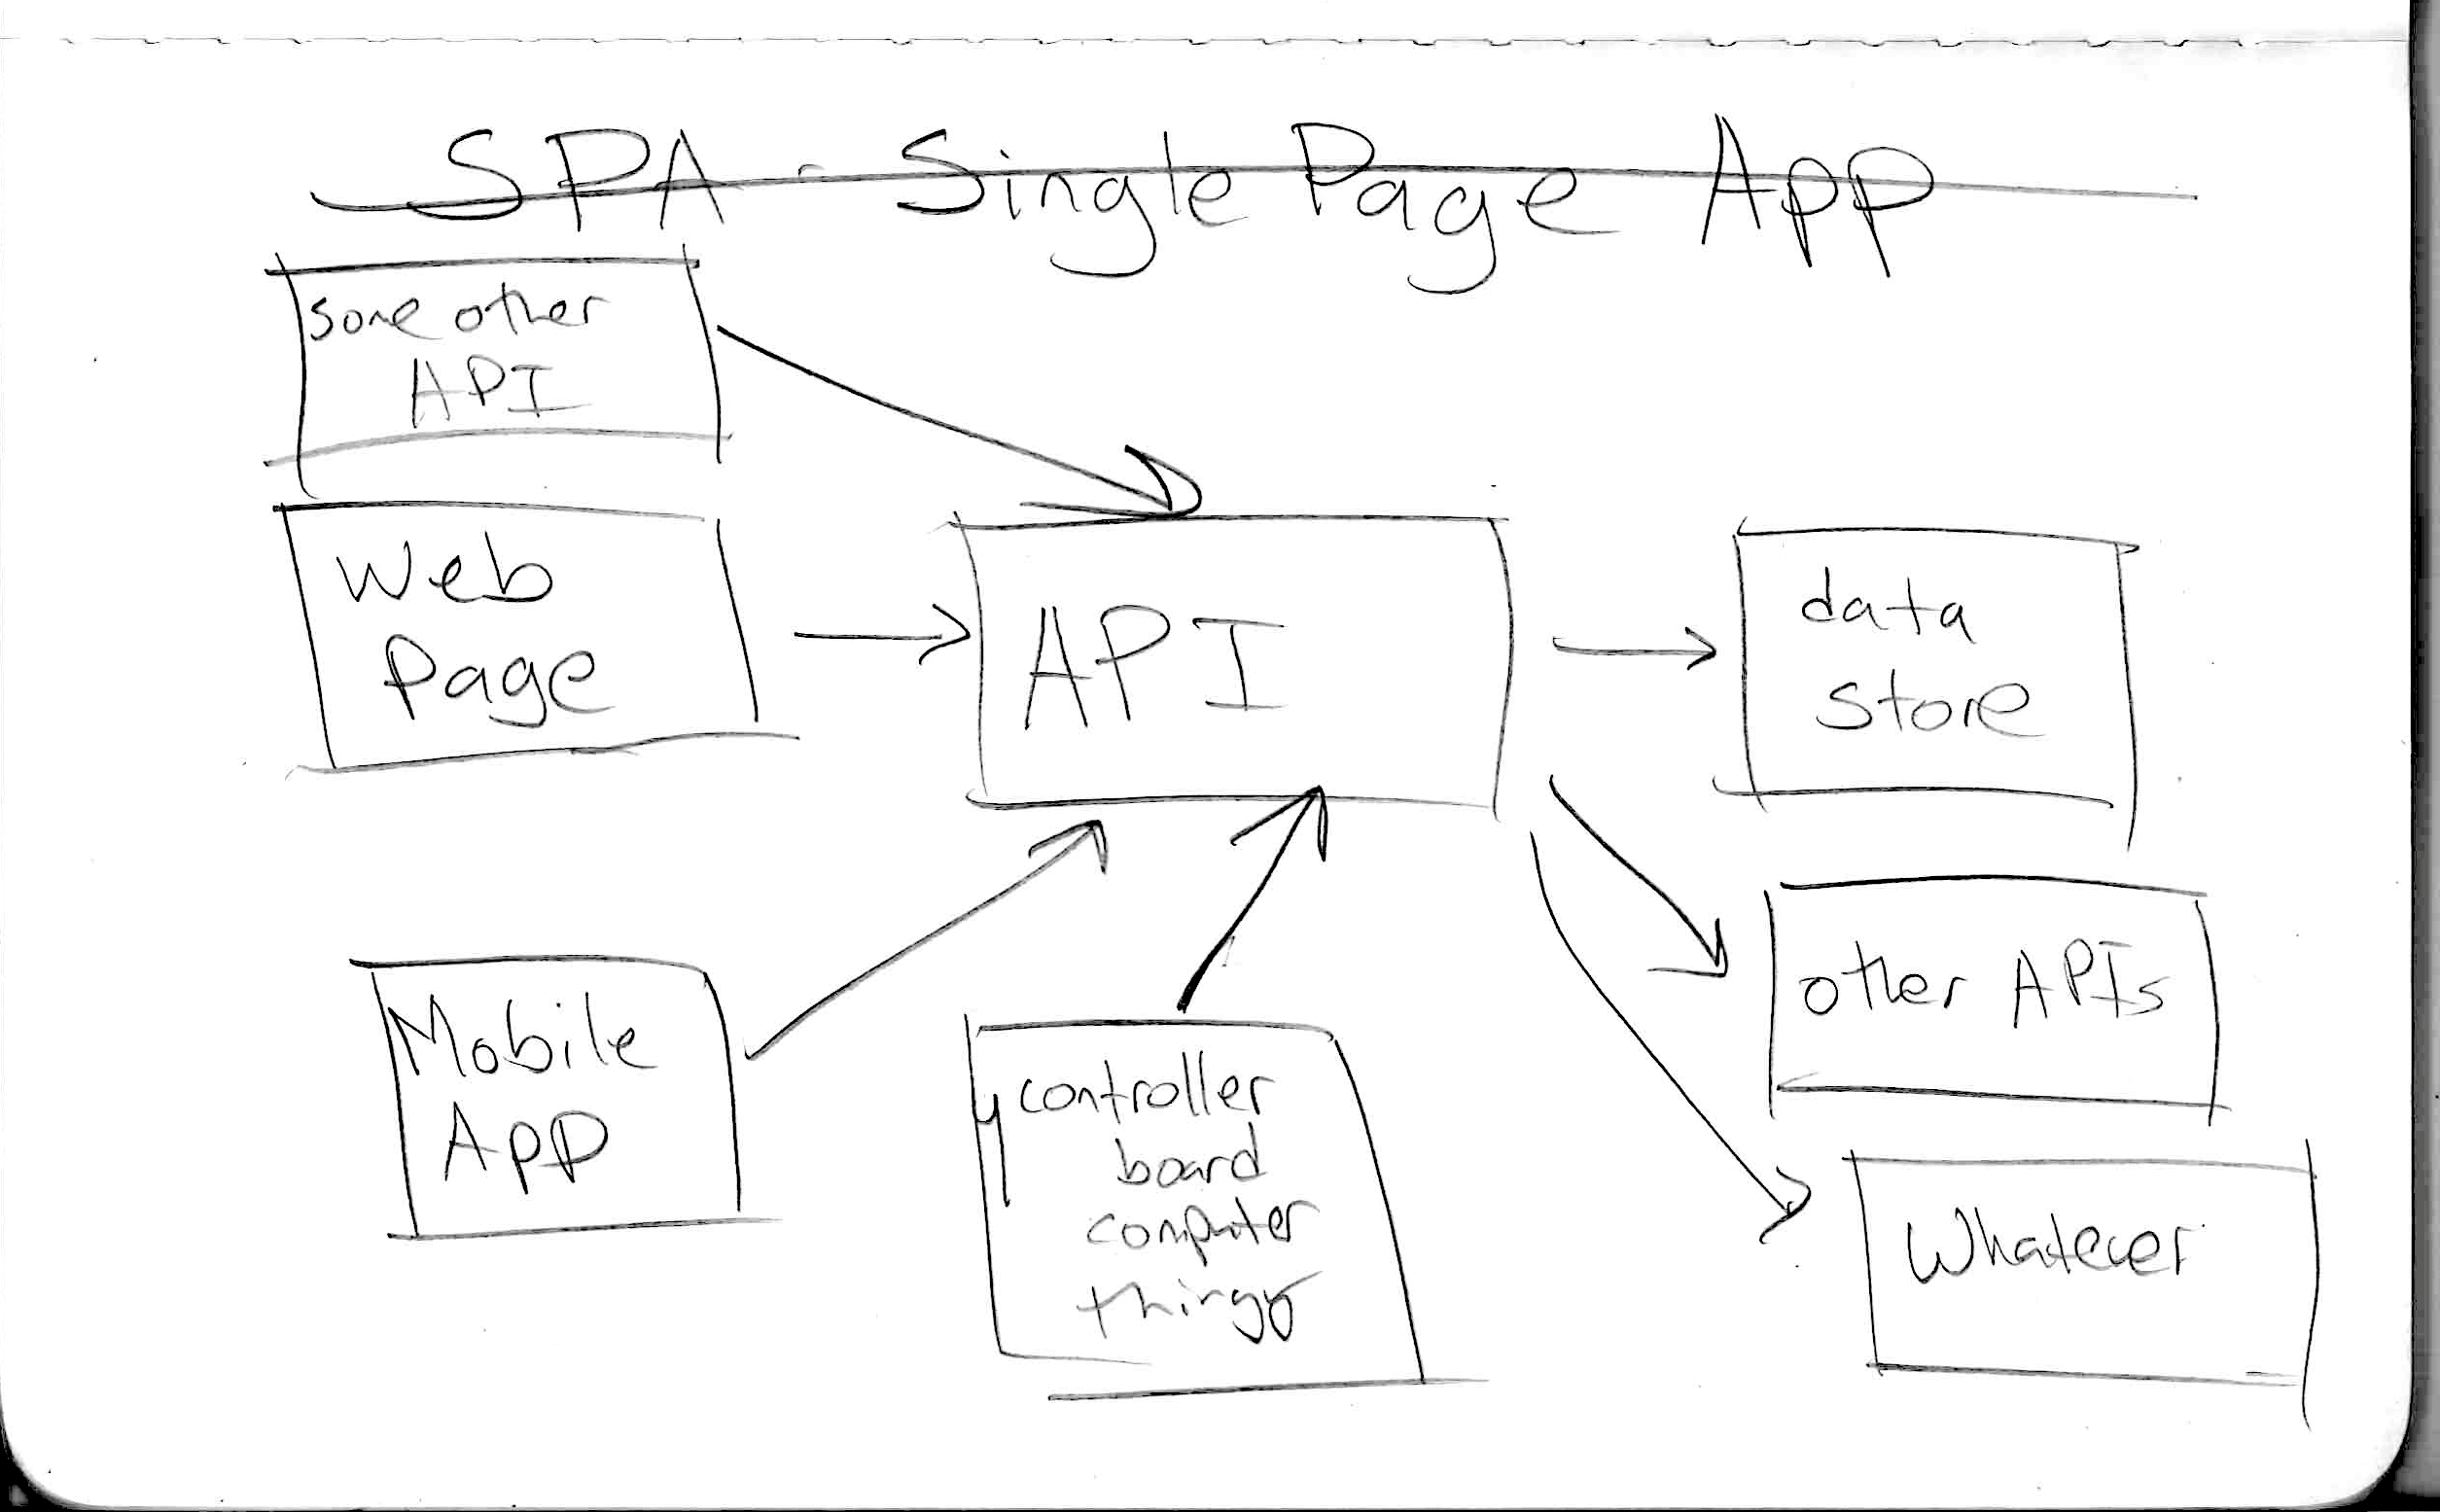 SPA - Single Page App
some other
API
Web
Page
API
data
store
other APIs
Whatever
Mobile
App
μcontroller
board
computer
thingy